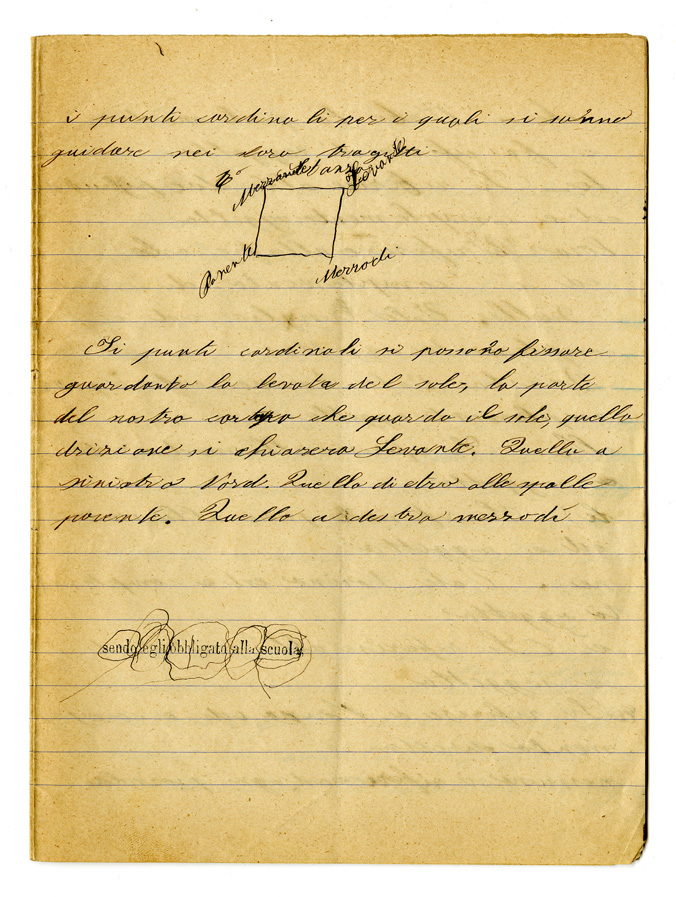 i punti cardinali per i quali si sanno
guidare nei loro tragitti
Levante
Ponente
Mezzodi
Si punti cardinali si possono fissare
guardanto la levata del sole, la parte
del nostro corpo che guarda il sole, quella
dirizione si chiazera Levante. Quella a
sinistra Nord. Quella dietro alle spalle
ponente. Quella a destra mezzodì
sendo egli obbligato alla scuola